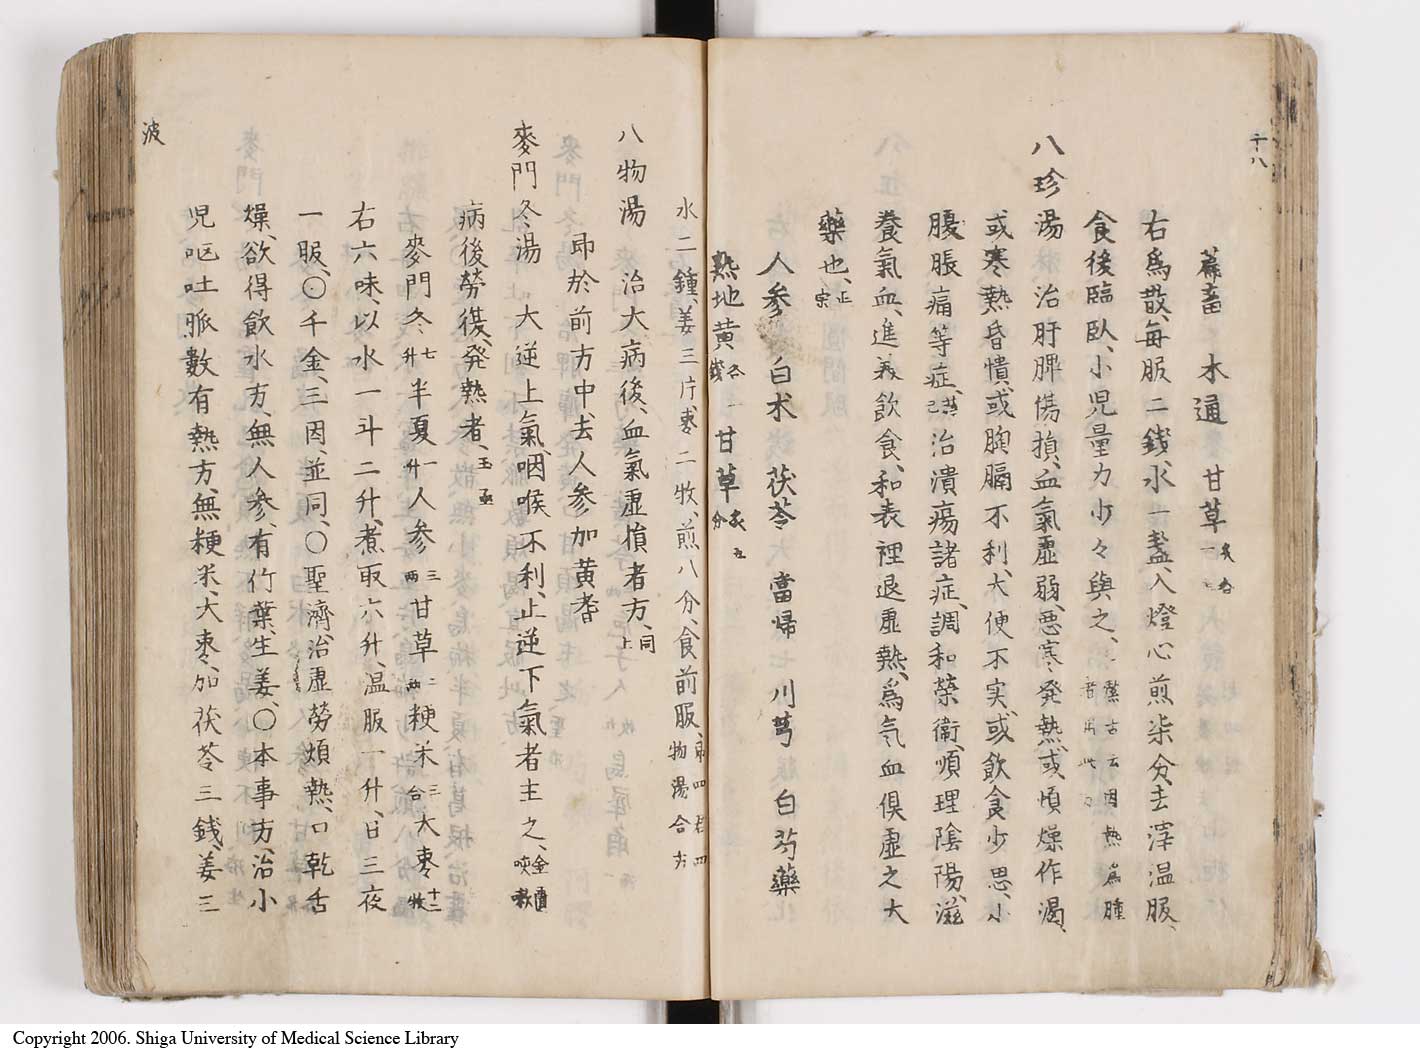 二十八
萹蓄 木通 甘草炙各一
右為散、毎服二銭、水一盞、入燈心煎柒分、去滓温服、
食後臨臥、小児量力少々與之、潔古云因熱為腫者用此
八珍湯 治肝脾傷損、血氣虚弱、悪寒発熱、或煩燥作渇、
或寒熱昏憒、或胸膈不利、大便不実、或飲食少思、小
腹脹痛等症、治潰瘍諸症、調和榮衛、順理陰陽、滋
養氣血、進美飲食、和表裡退虚熱、為気血倶虚之大
藥也、正宗
人参 白朮 茯苓 當帰 川芎 白芍藥
熟地黄各一銭 甘草炙五分
水二鍾、姜三片、棗二牧、煎八分、食前服、即四君四物湯合方
八物湯 治大病後、血氣虚憤者方、同上
即於前方中、去人参加黄耆
麥門冬湯 大逆上氣、咽喉不利、止逆下氣者主之、金匱咳嗽
病後勞復、発熱者、玉函
麥門冬七升 半夏一升 人参三両 甘草二両 粳米三合 大棗十二牧
右六味、以水一斗二升、煮取六升、温服一升、日三夜
一服、〇千金、三因、並同、〇聖濟、治虚勞煩熱、口乾舌
燥、欲得飲水方、無人参、有竹葉、生姜、〇本事方、治小
児嘔吐脈數有熱方、無粳米、大棗、加茯苓三銭、姜三
波